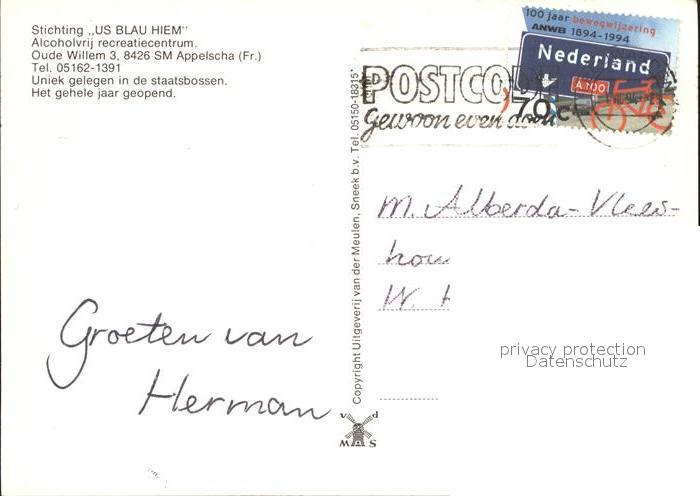 Stichting „US BLAU HIEM”
Alcoholvrij recreatiecentrum.
Oude Willem 3, 8426 SM Appelscha (Fr.)
Tel. 05162-1391
Uniek gelegen in de staatsbossen.
Het gehele jaar geopend.
100 jaar bewegwijzering
ANWB 1894-1994
Nederland
A 100
70 c
POSTCO
Gewoon even doen
Copyright Uitgeverij van der Meulen, Sneek b.v. Tel. 05150-18315*
M. Alberda-Vlees-
hou
W.
Groeten van
Herman
v d
M S
privacy protection
Datenschutz